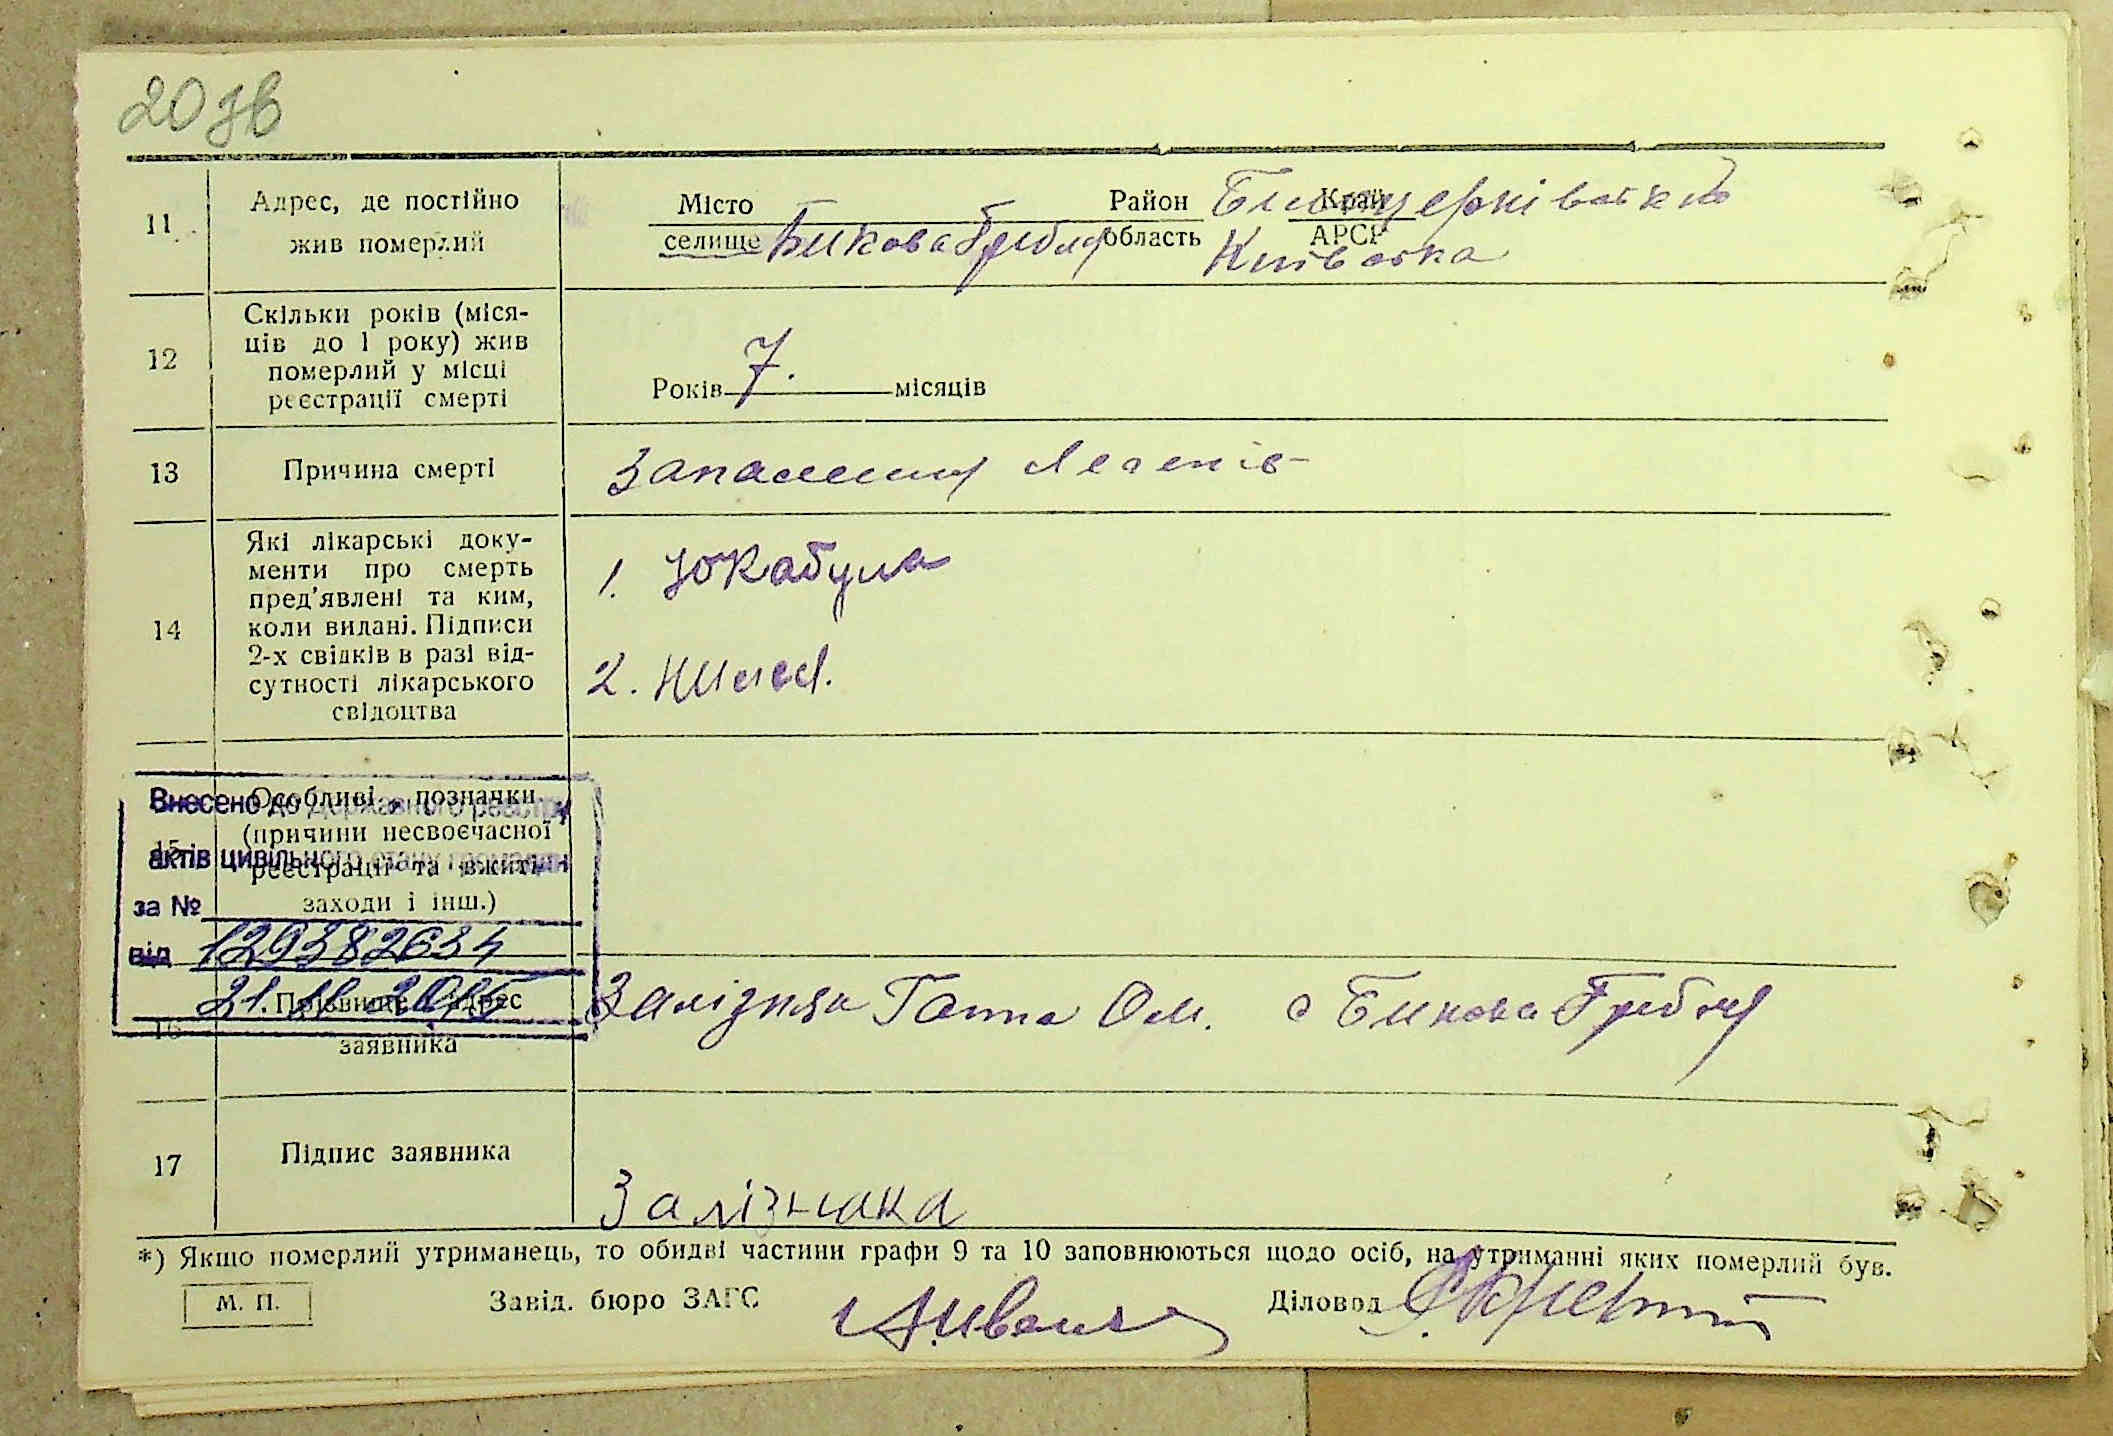 20 зв
11 Адрес, де постійно жив померлий
Місто селище Бикова Гребля Район Білоцерківський область Край АРСР Київська
12 Скільки років (міся-
ців до 1 року) жив
померлий у місці
реєстрації смерті
Років 7. місяців
13 Причина смерті Запалення Легенів
14 Які лікарські доку-
менти про смерть
пред'явлені та ким,
коли видані. Підписи
2-х свідків в разі від-
сутності лікарського
свідоцтва
1.
2.
15 Особливі позначки
(причини несвоєчасної
реєстрації та вжиті
заходи і інш.)
Внесено до Державного реєстру
актів цивільного стану громадян
за №
від 129382634
21.
16 Прізвище і адрес
заявника
Залізняк Ганна Ом. с Бикова Гребля
17 Підпис заявника
Залізняка
*) Якщо померлий утриманець, то обидві частини графи 9 та 10 заповнюються щодо осіб, на утриманні яких померлий був.
М. П. Завід. бюро ЗАГС Діловод